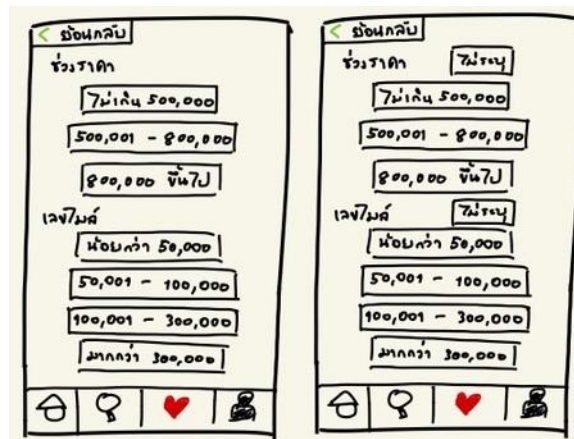 < ย้อนกลับ
ช่วงราคา
ไม่เกิน 500,000
500,001 - 800,000
800,000 ขึ้นไป
เลขไมล์
น้อยกว่า 50,000
50,001 - 100,000
100,001 - 300,000
มากกว่า 300,000
< ย้อนกลับ
ช่วงราคา ไม่ระบุ
ไม่เกิน 500,000
500,001 - 800,000
800,000 ขึ้นไป
เลขไมล์ ไม่ระบุ
น้อยกว่า 50,000
50,001 - 100,000
100,001 - 300,000
มากกว่า 300,000